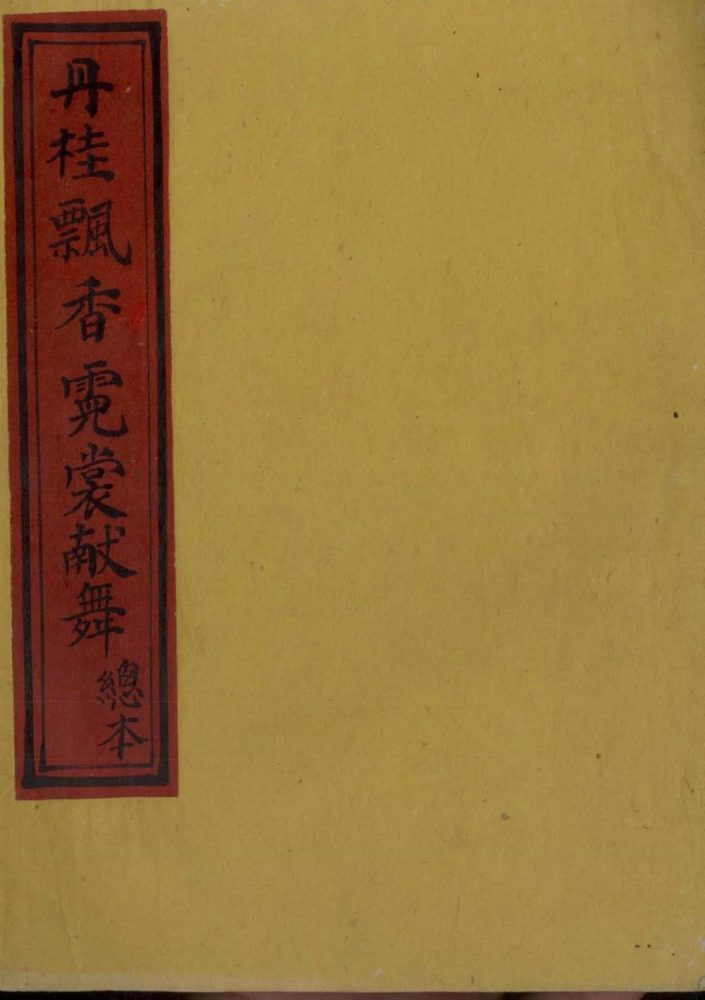 丹桂飄香霓裳献舞
總本